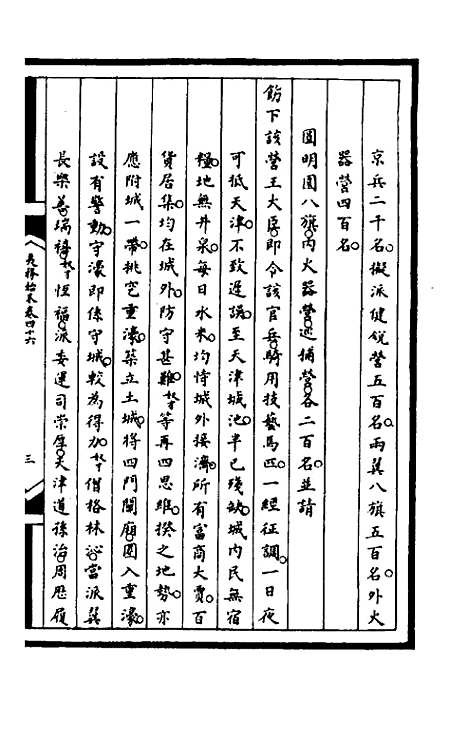 京兵二千名。擬派健銳營五百名。兩翼八旗五百名。外火
器營四百名。
圓明園八旗。內火器營。巡捕營。各二百名。並請
飭下該營王大臣。即令該官兵。騎用技藝馬匹。一經征調。一日夜
可抵天津。不致遲誤。至天津城池。半已殘缺。城內民無宿
糧。地無井泉。每日水米。均恃城外接濟。所有富商大賈。百
貨居集。均在城外。防守甚難。奴才等再四思維。揆之地勢。亦
應附城一帶挑空重濠。築立土城。將四門關廂。圈入重濠。
設有警動。守濠即係守城。較為得力。奴才僧格林沁。當派翼
長樂善。瑞禧。奴才恆福。派委運司崇厚。天津道孫治。周歷履
夷務始末卷四十六
三